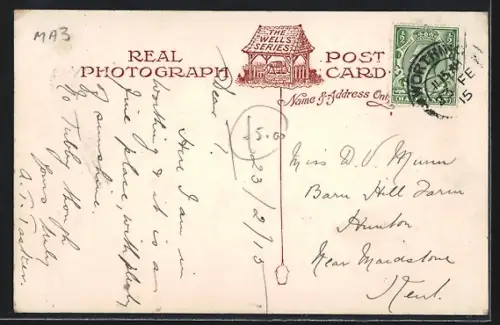 MA3
REAL
PHOTOGRAPH
THE
WELLS
SERIES
POST
CARD
Name & Address Only
WORTHING
FE
15
5.00
23/2/15
Dear
Here I am in
Worthing & it is a
fine place, with plenty
of sunshine.
Tubby though
Yours truly
Miss D. V. Munn
Barn Hill Farm
Hunton
Near Maidstone
Kent.